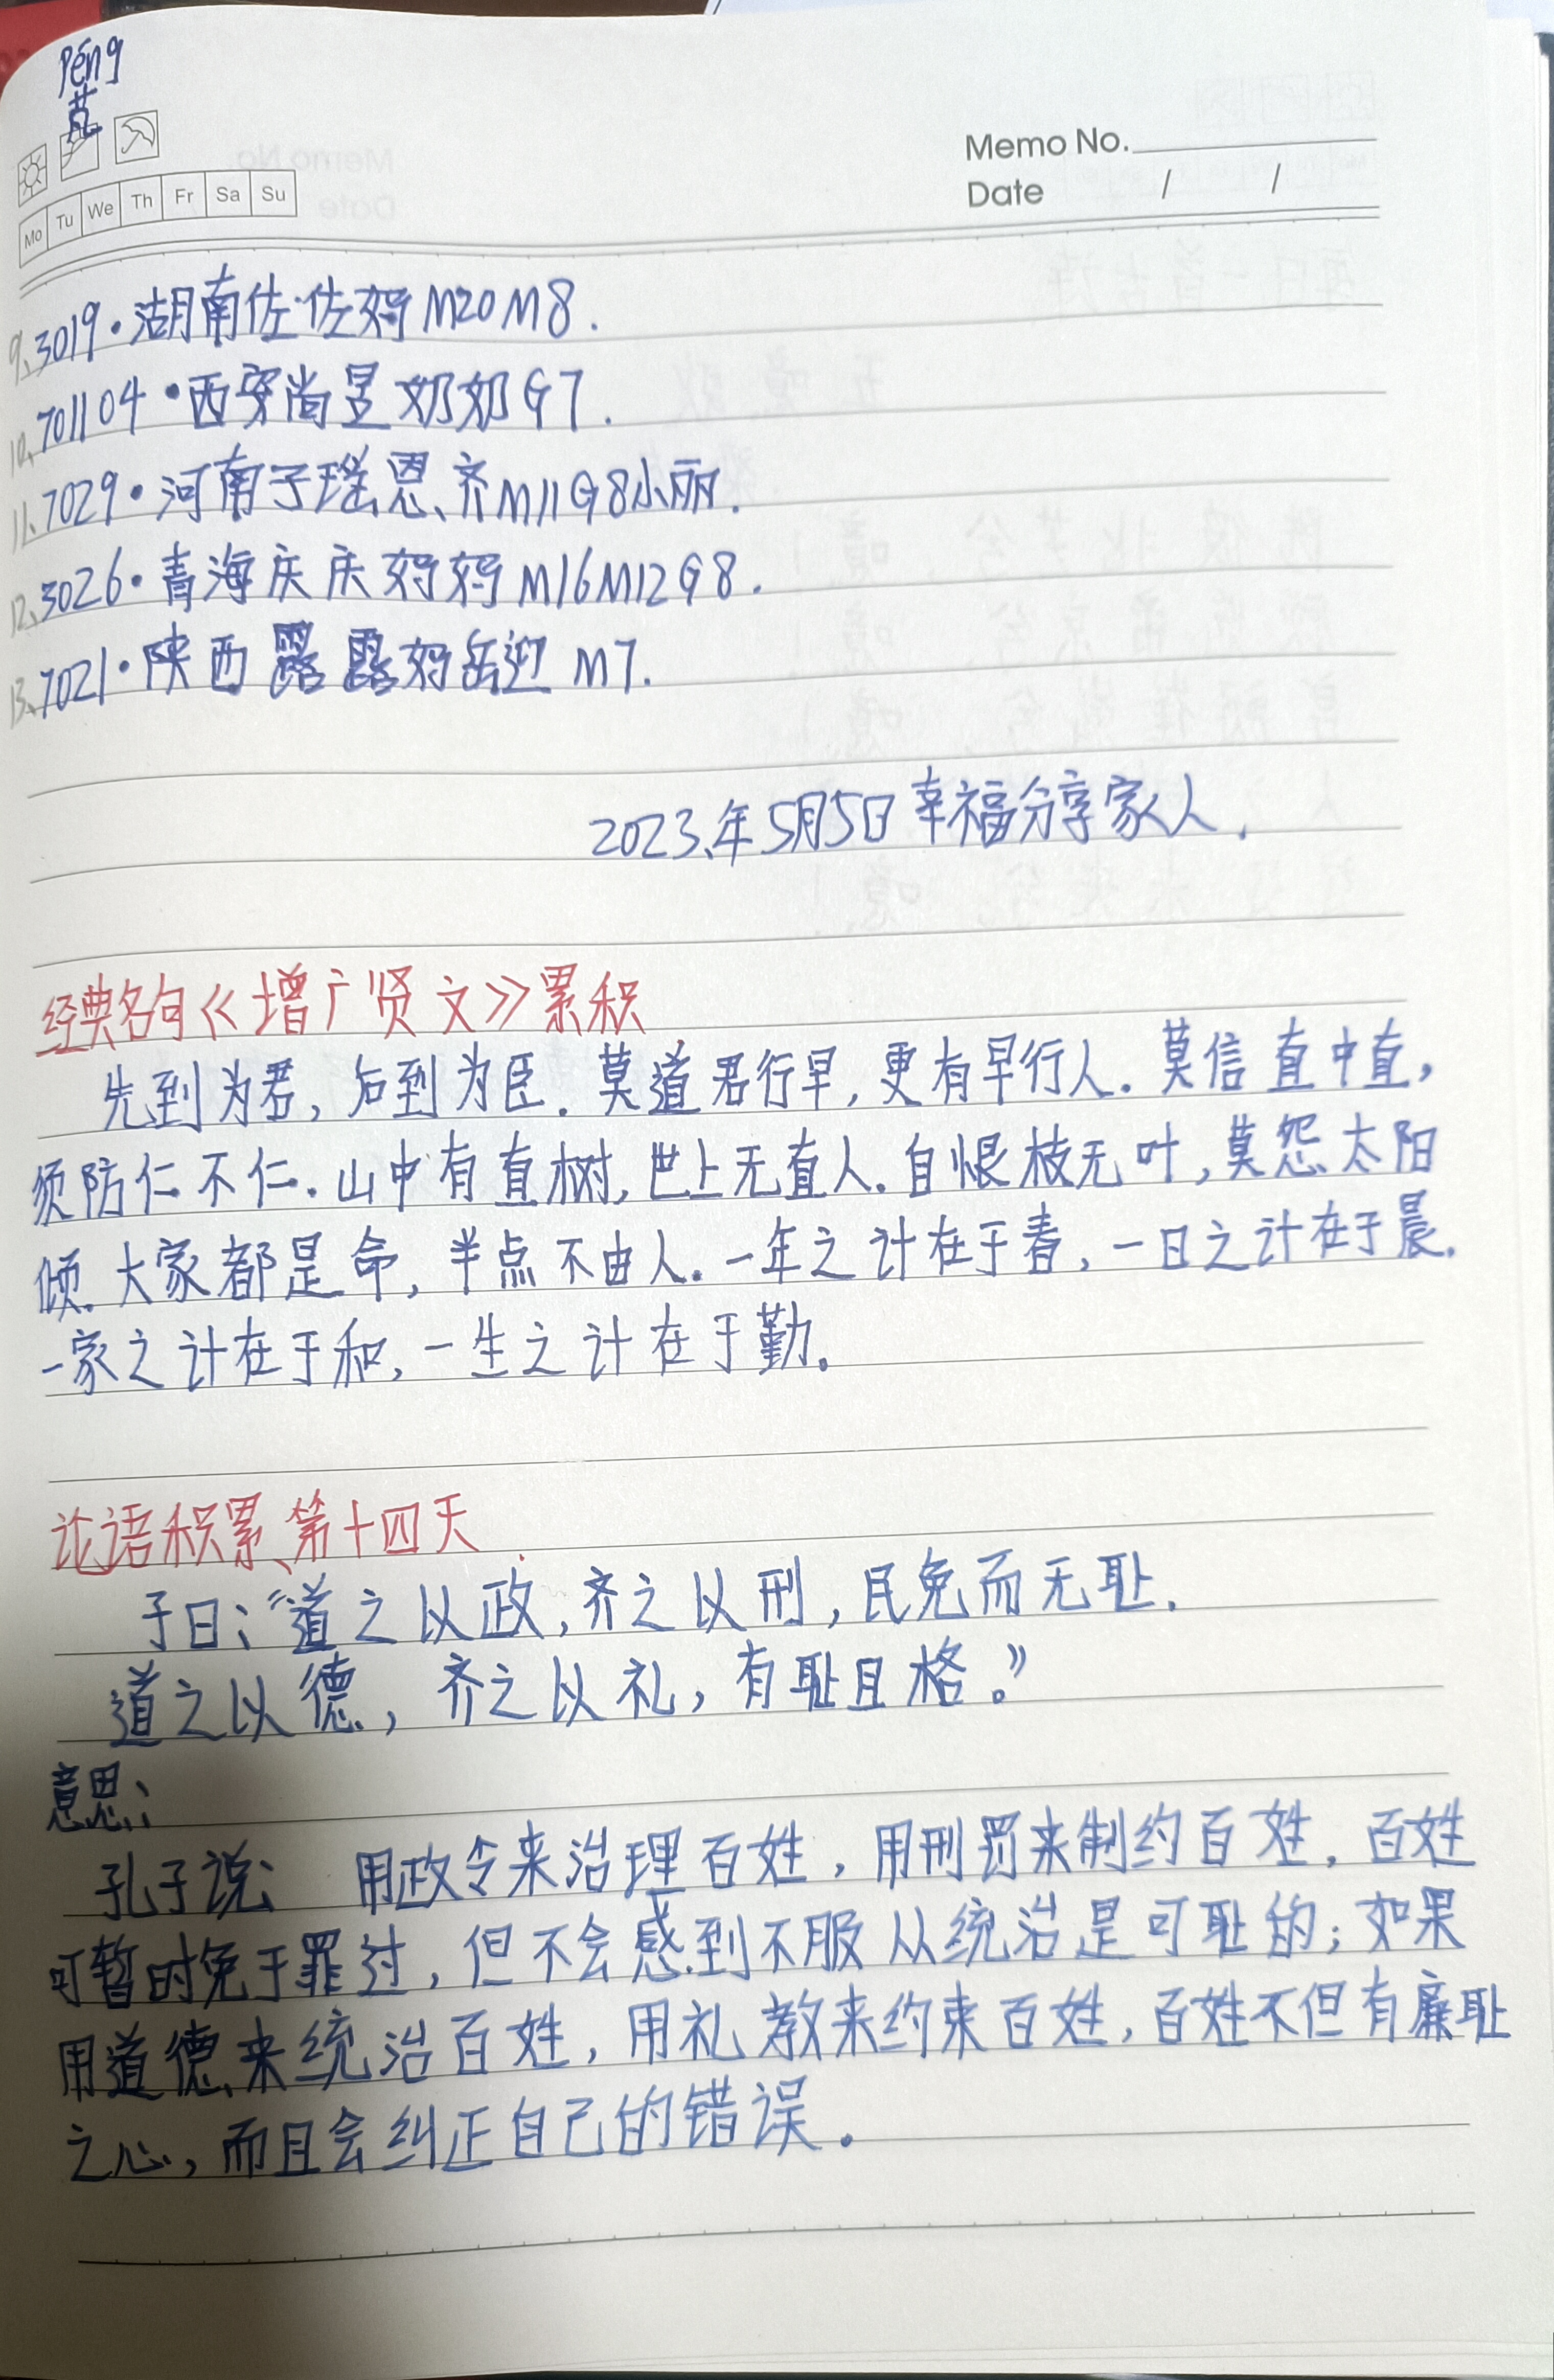 péng
芃
Memo No.
Date / /
Mo Tu We Th Fr Sa Su
9、3019·湖南佐佐妈M20M8.
10、701104·西安尚昱奶奶G7.
11、7029·河南子瑤恩、齐M11G8小丽.
12、3026·青海庆庆妈妈M16M12G8.
13、7021·陕西露露妈岳迎M7.
2023年5月5日幸福分享家人.
经典名句《增广贤文》累积
先到为君,后到为臣.莫道君行早,更有早行人.莫信直中直,
须防仁不仁.山中有直树,世上无直人.自恨枝无叶,莫怨太阳
倾.大家都是命,半点不由人.一年之计在于春,一日之计在于晨.
一家之计在于和,一生之计在于勤。
论语积累、第十四天
子曰:“道之以政,齐之以刑,民免而无耻.
道之以德,齐之以礼,有耻且格。”
意思:
孔子说: 用政令来治理百姓,用刑罚来制约百姓,百姓
可暂时免于罪过,但不会感到不服从统治是可耻的;如果
用道德来统治百姓,用礼教来约束百姓,百姓不但有廉耻
之心,而且会纠正自己的错误。